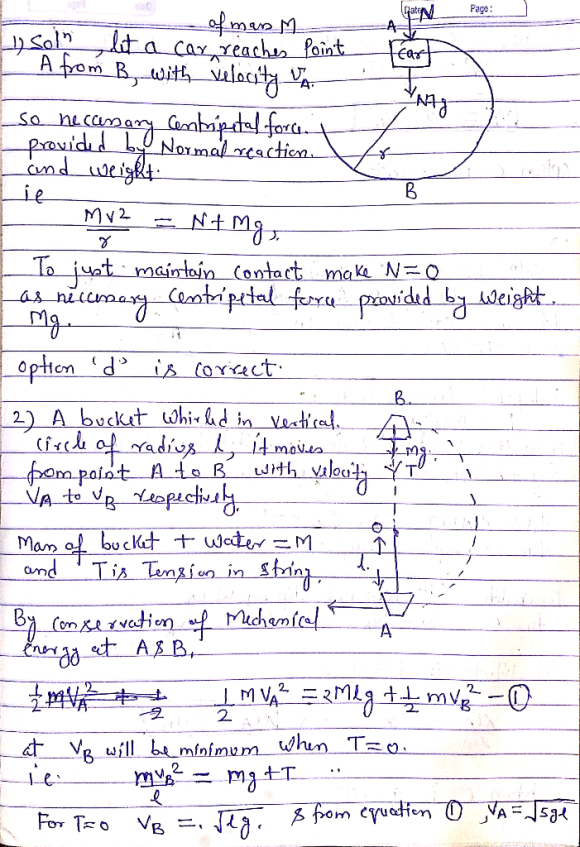 Date: Page:
of mass M
1) Solⁿ, let a car, reaches Point
A from B, with velocity V_A.
A N
Car
Mg
r
B
so neccessary Centripetal force.
provided by Normal reaction.
and weight.
ie
Mv2/r = N + Mg,
To just maintain contact make N=0
as neccessary centripetal force provided by weight.
Mg.
option 'd' is correct.
B.
2) A bucket whirled in vertical.
circle of radius l, it moves
from point A to B with velocity
V_A to V_B respectively.
mg
T
Mass of bucket + water = M
and T is Tension in string.
O
l.
A
By conservation of Mechanical
energy at A & B,
½ mV_A² + ½
½ MV_A² = 2Mlg + ½ mV_B² - ①
at V_B will be minimum when T=0.
i.e. mv_B²/l = mg + T
For T=0 V_B = √lg. & from equation ①, V_A = √5gl